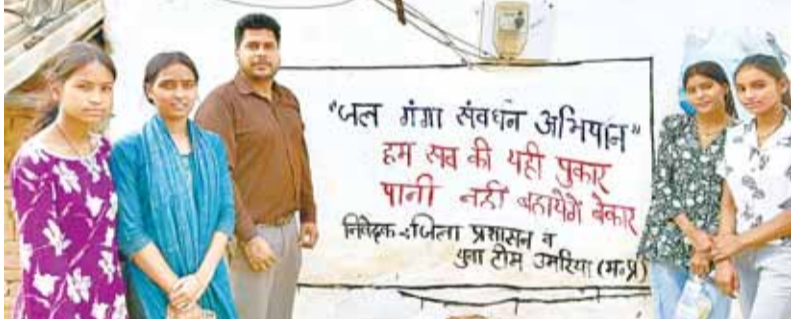 "जल गंगा संवर्धन अभियान"
हम सब की यही पुकार
पानी नही बहायेगें बेकार
निवेदक :- जिला प्रशासन व
युवा टीम उमरिया (म॰प्र)